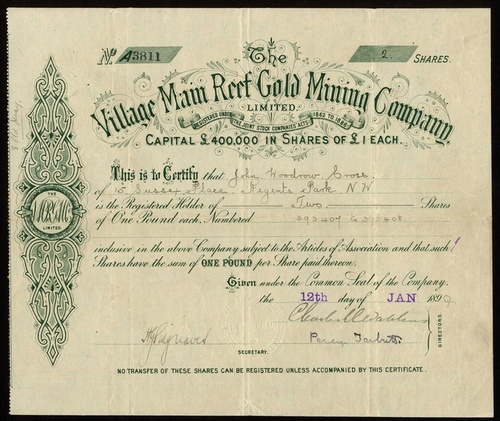 No. A3811
2 SHARES.
The
Village Main Reef Gold Mining Company
LIMITED.
REGISTERED UNDER THE JOINT STOCK COMPANIES' ACTS 1862 TO
CAPITAL £400,000 IN SHARES OF £1 EACH.
This is to Certify that John Woodrow Cross
of 15 Sussex Place Regents Park N W
is the Registered Holder of Two Shares
of One Pound each, Numbered 393407 to 393408
inclusive in the above Company subject to the Articles of Association and that such
Shares have the sum of ONE POUND per Share paid thereon.
Given under the Common Seal of the Company.
the 12th day of JAN 1899
THE
LIMITED.
Percy Tarbutt
DIRECTORS.
SECRETARY.
NO TRANSFER OF THESE SHARES CAN BE REGISTERED UNLESS ACCOMPANIED BY THIS CERTIFICATE.